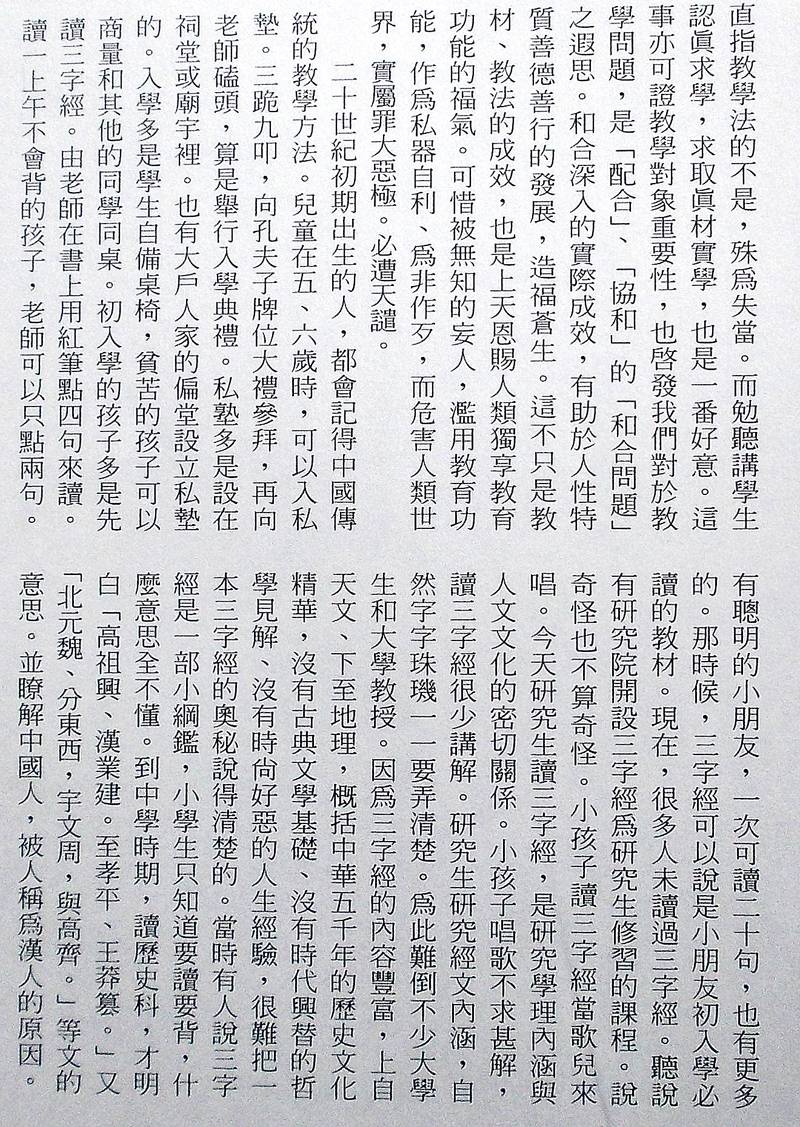 直指教學法的不是，殊爲失當。而勉聽講學生
認眞求學，求取眞材實學，也是一番好意。這
事亦可證教學對象重要性，也啓發我們對於教
學問題，是「配合」、「協和」的「和合問題」
之遐思。和合深入的實際成效，有助於人性特
質善德善行的發展，造福蒼生。這不只是教
材、教法的成效，也是上天恩賜人類獨享教育
功能的福氣。可惜被無知的妄人，濫用教育功
能，作爲私器自利、爲非作歹，而危害人類世
界，實屬罪大惡極。必遭天譴。
二十世紀初期出生的人，都會記得中國傳
統的教學方法。兒童在五、六歲時，可以入私
塾。三跪九叩，向孔夫子牌位大禮參拜，再向
老師磕頭，算是舉行入學典禮。私塾多是設在
祠堂或廟宇裡。也有大戶人家的偏堂設立私塾
的。入學多是學生自備桌椅，貧苦的孩子可以
商量和其他的同學同桌。初入學的孩子多是先
讀三字經。由老師在書上用紅筆點四句來讀。
讀一上午不會背的孩子，老師可以只點兩句。
有聰明的小朋友，一次可讀二十句，也有更多
的。那時候，三字經可以說是小朋友初入學必
讀的教材。現在，很多人未讀過三字經。聽說
有研究院開設三字經爲研究生修習的課程。說
奇怪也不算奇怪。小孩子讀三字經當歌兒來
唱。今天研究生讀三字經，是研究學理內涵與
人文文化的密切關係。小孩子唱歌不求甚解，
讀三字經很少講解。研究生研究經文內涵，自
然字字珠璣一一要弄清楚。爲此難倒不少大學
生和大學教授。因爲三字經的內容豐富，上自
天文、下至地理，概括中華五千年的歷史文化
精華，沒有古典文學基礎、沒有時代興替的哲
學見解、沒有時尙好惡的人生經驗，很難把一
本三字經的奧秘說得清楚的。當時有人說三字
經是一部小綱鑑，小學生只知道要讀要背，什
麼意思全不懂。到中學時期，讀歷史科，才明
白「高祖興、漢業建。至孝平、王莽篡。」又
「北元魏、分東西，宇文周，與高齊。」等文的
意思。並瞭解中國人，被人稱爲漢人的原因。